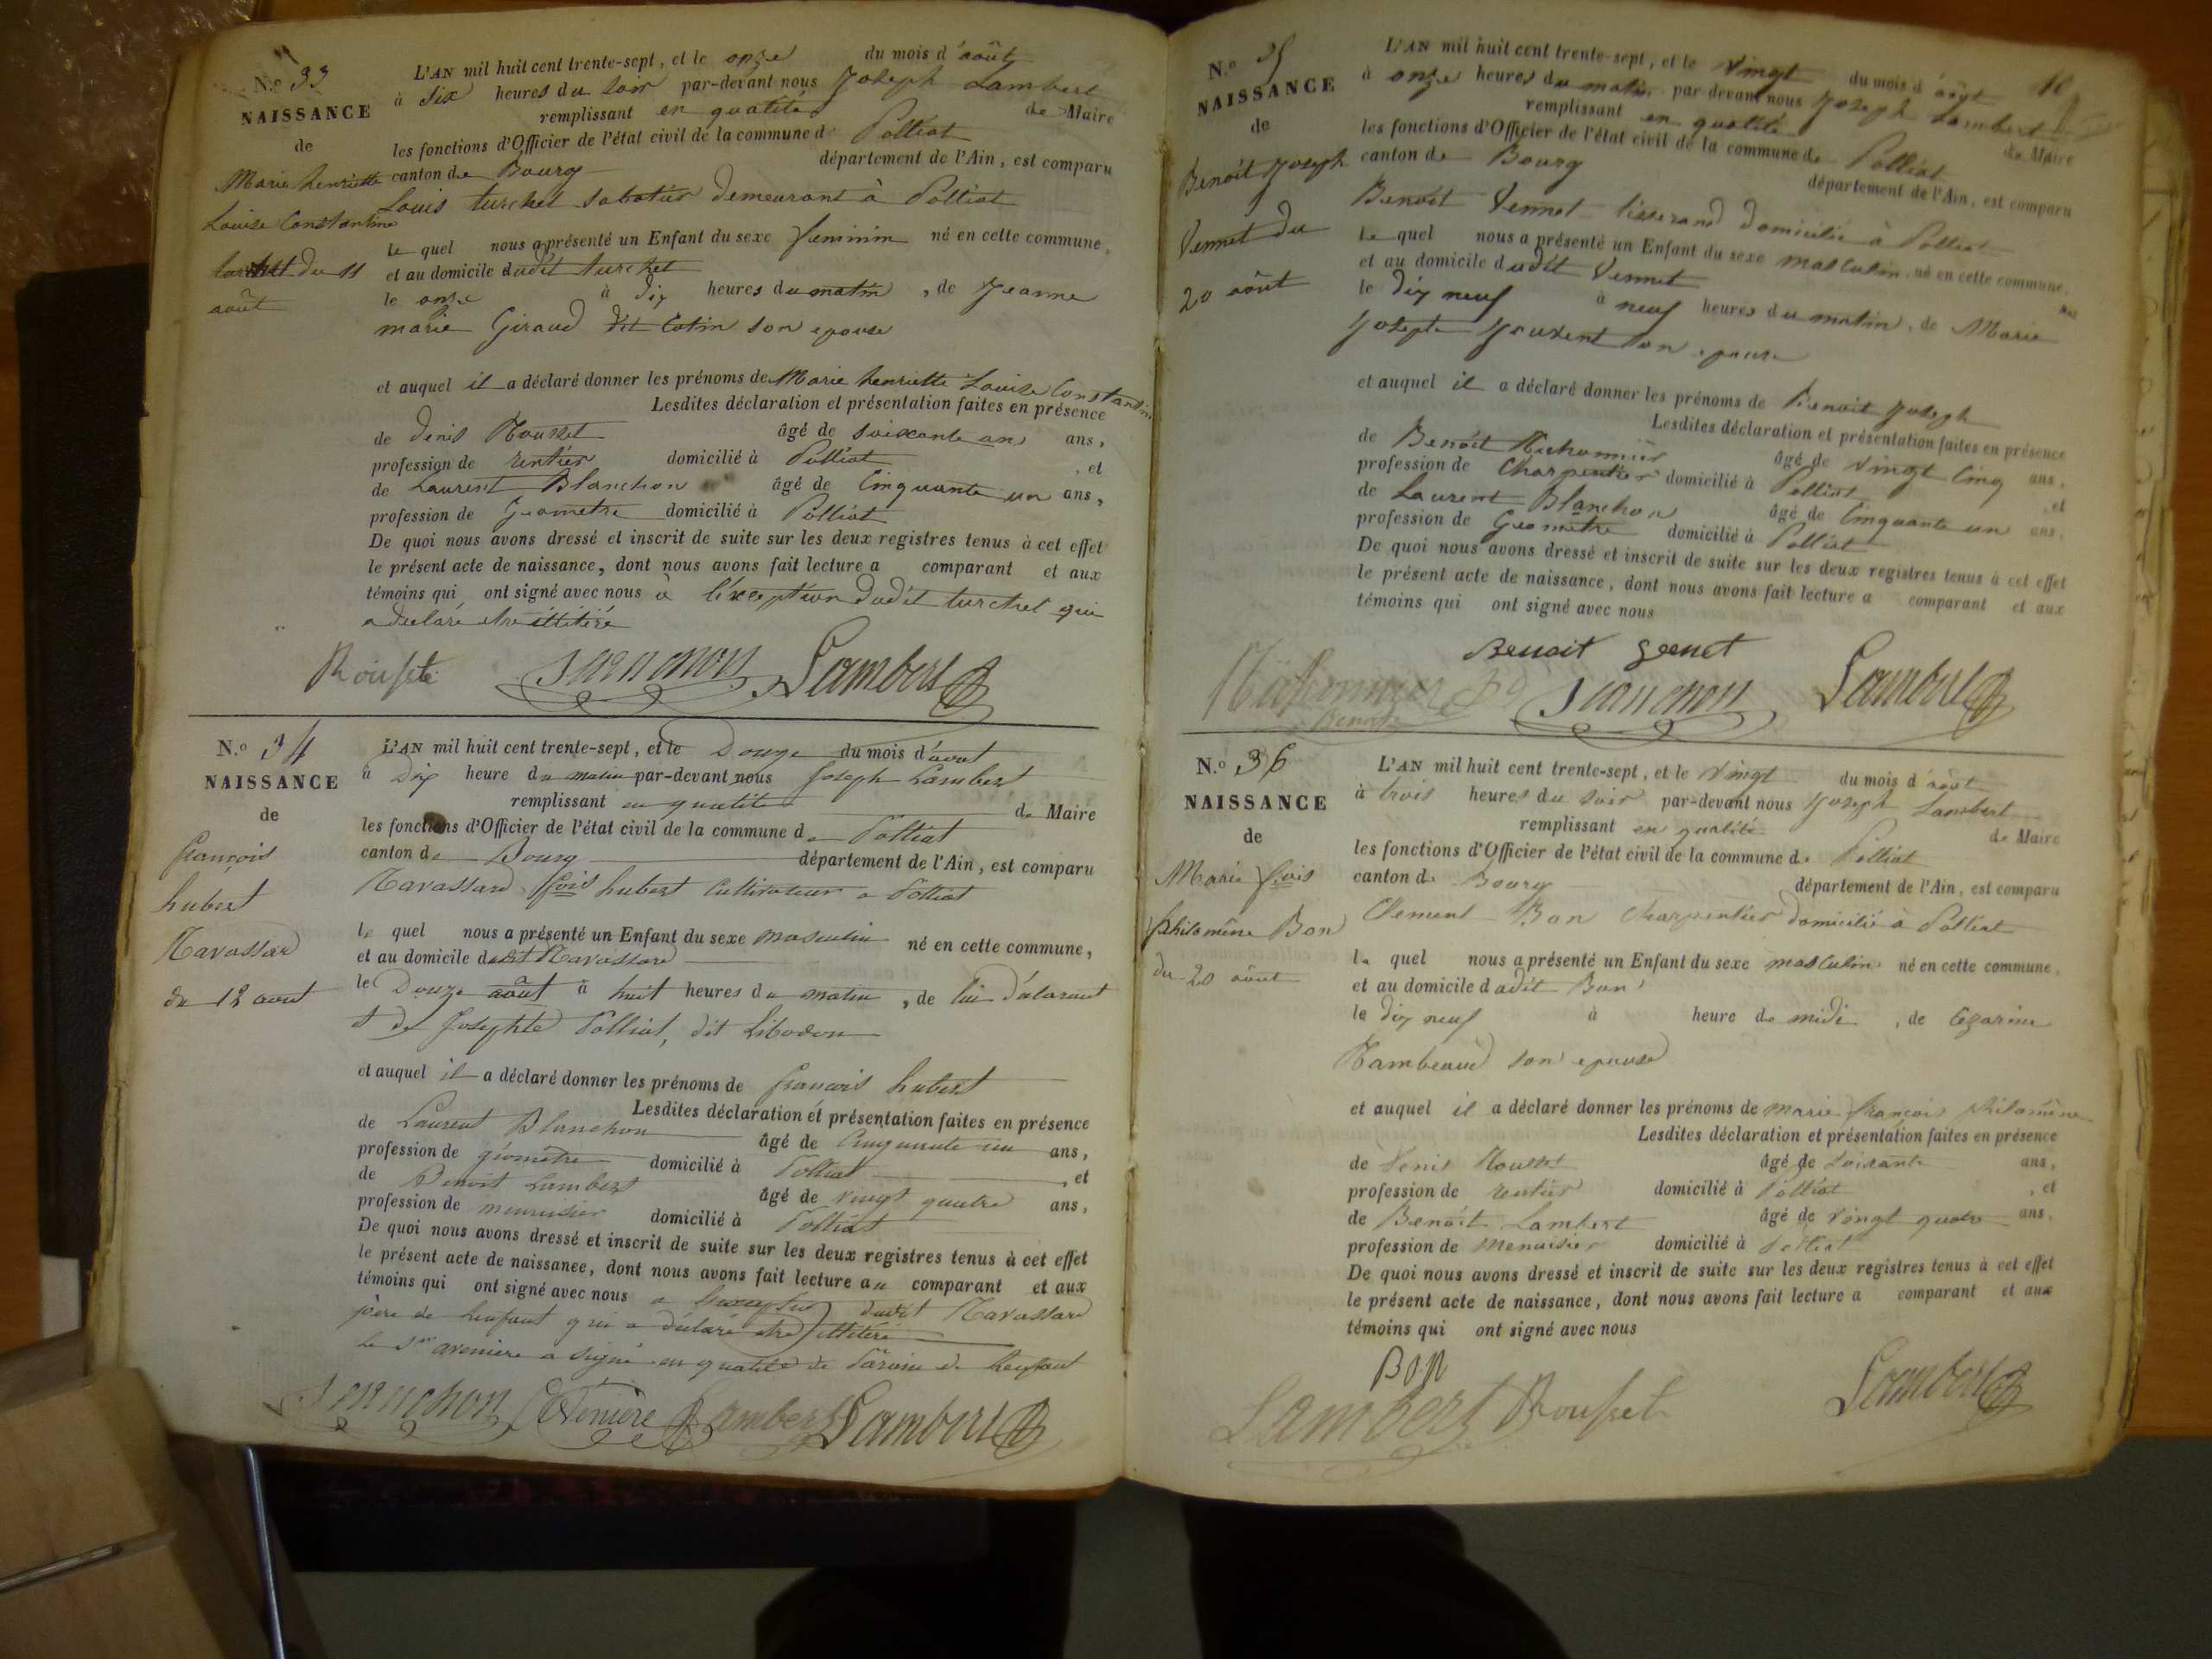 N.o 33
NAISSANCE
de
Marie henriette
Louise Constantine
turchet du 11
août
L'AN mil huit cent trente-sept, et le onze du mois d'août
à six heures du soir par-devant nous Joseph Lambert
remplissant en qualité de Maire
les fonctions d'Officier de l'état civil de la commune de Polliat
canton de Bourg département de l'Ain, est comparu
Louis turchet sabotier demeurant à Polliat
le quel nous a présenté un Enfant du sexe feminin né en cette commune,
et au domicile dudit turchet
le onze à dix heures du matin, de Jeanne
marie Giraud dit Cotin son epouse
et auquel il a déclaré donner les prénoms de Marie henriette Louise Constantine
Lesdites déclaration et présentation faites en présence
de Denis Rousset âgé de soixante ans ans,
profession de rentier domicilié à Polliat, et
de Laurent Blanchon âgé de Cinquante un ans,
profession de Géometre domicilié à Polliat
De quoi nous avons dressé et inscrit de suite sur les deux registres tenus à cet effet
le présent acte de naissance, dont nous avons fait lecture a comparant et aux
témoins qui ont signé avec nous à l'éxception dudit turchet qui
a declaré etre illitéré
Lambert
N.o 34
NAISSANCE
de
françois
hubert
Ravassard
du 12 aout
L'AN mil huit cent trente-sept, et le Douze du mois d'aout
à Dix heure du matin par-devant nous Joseph Lambert
remplissant en qualité de Maire
les fonctions d'Officier de l'état civil de la commune de Polliat
canton de Bourg département de l'Ain, est comparu
Ravassard fçois hubert Cultivateur a Polliat
le quel nous a présenté un Enfant du sexe masculin né en cette commune,
et au domicile dudit Ravassard
le Douze août à huit heures du matin, de lui d'éclarant
et de Josephte Polliat, dit Libodon
et auquel il a déclaré donner les prénoms de francois hubert
Lesdites déclaration et présentation faites en présence
de Laurent Blanchon âgé de Cinquante un ans,
profession de géomètre domicilié à Polliat, et
de Benoit Lambert âgé de vingt quatre ans,
profession de menuisier domicilié à Polliat
De quoi nous avons dressé et inscrit de suite sur les deux registres tenus à cet effet
le présent acte de naissance, dont nous avons fait lecture au comparant et aux
témoins qui ont signé avec nous a l'exception dudit Ravassard
père de l'enfant qui a declaré etre illitéré
Le Sr avenière a signé en qualité de Parain de l'enfant
Lambert Lambert
N.o 35
NAISSANCE
de
Benoit Joseph
Vennet du
20 août
L'AN mil huit cent trente-sept, et le vingt du mois d'août
à onze heures du matin par-devant nous Joseph Lambert
remplissant en qualité de Maire
les fonctions d'Officier de l'état civil de la commune de Polliat
canton de Bourg département de l'Ain, est comparu
Benoit Vennet tisserand domicilié à Polliat
le quel nous a présenté un Enfant du sexe masculin né en cette commune,
et au domicile dudit Vennet
le dix neuf à neuf heures du matin, de Marie
Josepte son epouse
et auquel il a déclaré donner les prénoms de Benoit Joseph
Lesdites déclaration et présentation faites en présence
de Benoit âgé de vingt Cinq ans,
profession de Charpentier domicilié à Polliat, et
de Laurent Blanchon âgé de Cinquante un ans,
profession de Géometre domicilié à Polliat
De quoi nous avons dressé et inscrit de suite sur les deux registres tenus à cet effet
le présent acte de naissance, dont nous avons fait lecture a comparant et aux
témoins qui ont signé avec nous
Benoit
Lambert
N.o 36
NAISSANCE
de
Marie fçois
philomène Bon
du 20 août
L'AN mil huit cent trente-sept, et le vingt du mois d'août
à trois heures du soir par-devant nous Joseph Lambert
remplissant en qualité de Maire
les fonctions d'Officier de l'état civil de la commune de Polliat
canton de Bourg département de l'Ain, est comparu
Clement Bon charpentier domicilié à Polliat
le quel nous a présenté un Enfant du sexe masculin né en cette commune,
et au domicile dudit Bon
le dix neuf à heure de midi, de Cezarine
Rambeaud son epouse
et auquel il a déclaré donner les prénoms de marie françois philomène
Lesdites déclaration et présentation faites en présence
de Denis Rousset âgé de soixante ans,
profession de rentier domicilié à Polliat, et
de Benoit Lambert âgé de vingt quatre ans,
profession de menuisier domicilié à Polliat
De quoi nous avons dressé et inscrit de suite sur les deux registres tenus à cet effet
le présent acte de naissance, dont nous avons fait lecture a comparant et aux
témoins qui ont signé avec nous
Bon
Lambert Rousset Lambert